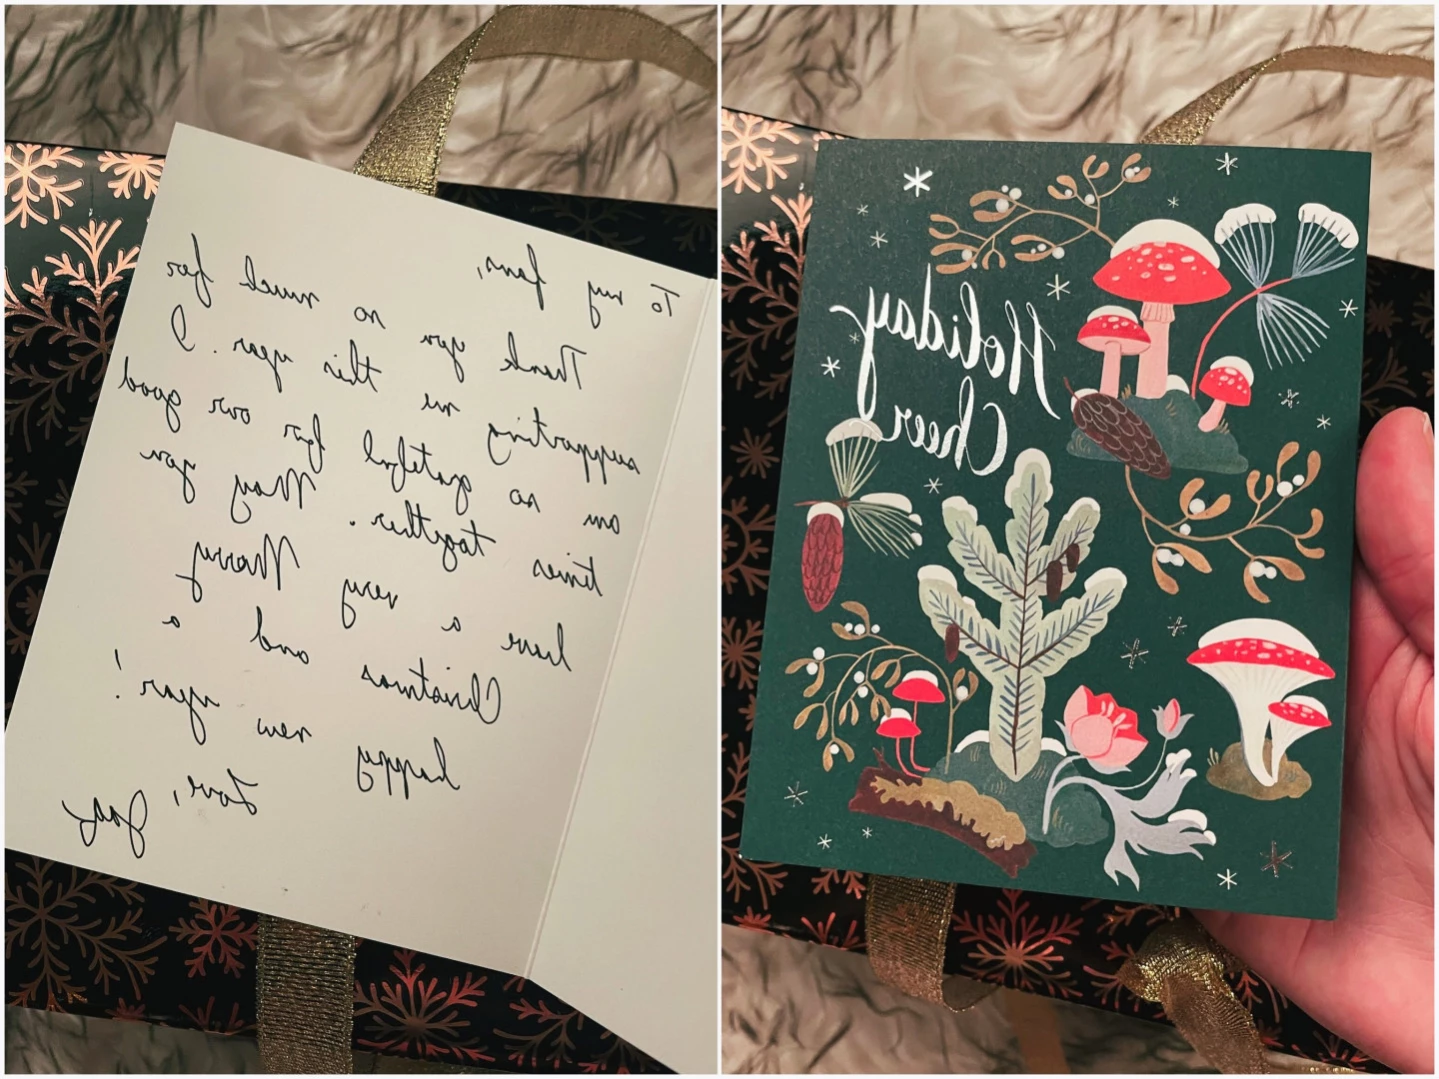 To my fans,
Thank you so much for
supporting me this year. I
am so grateful for our good
times together. May you
have a very Merry
Christmas and a
happy new year!
Love,
Holiday
Cheer